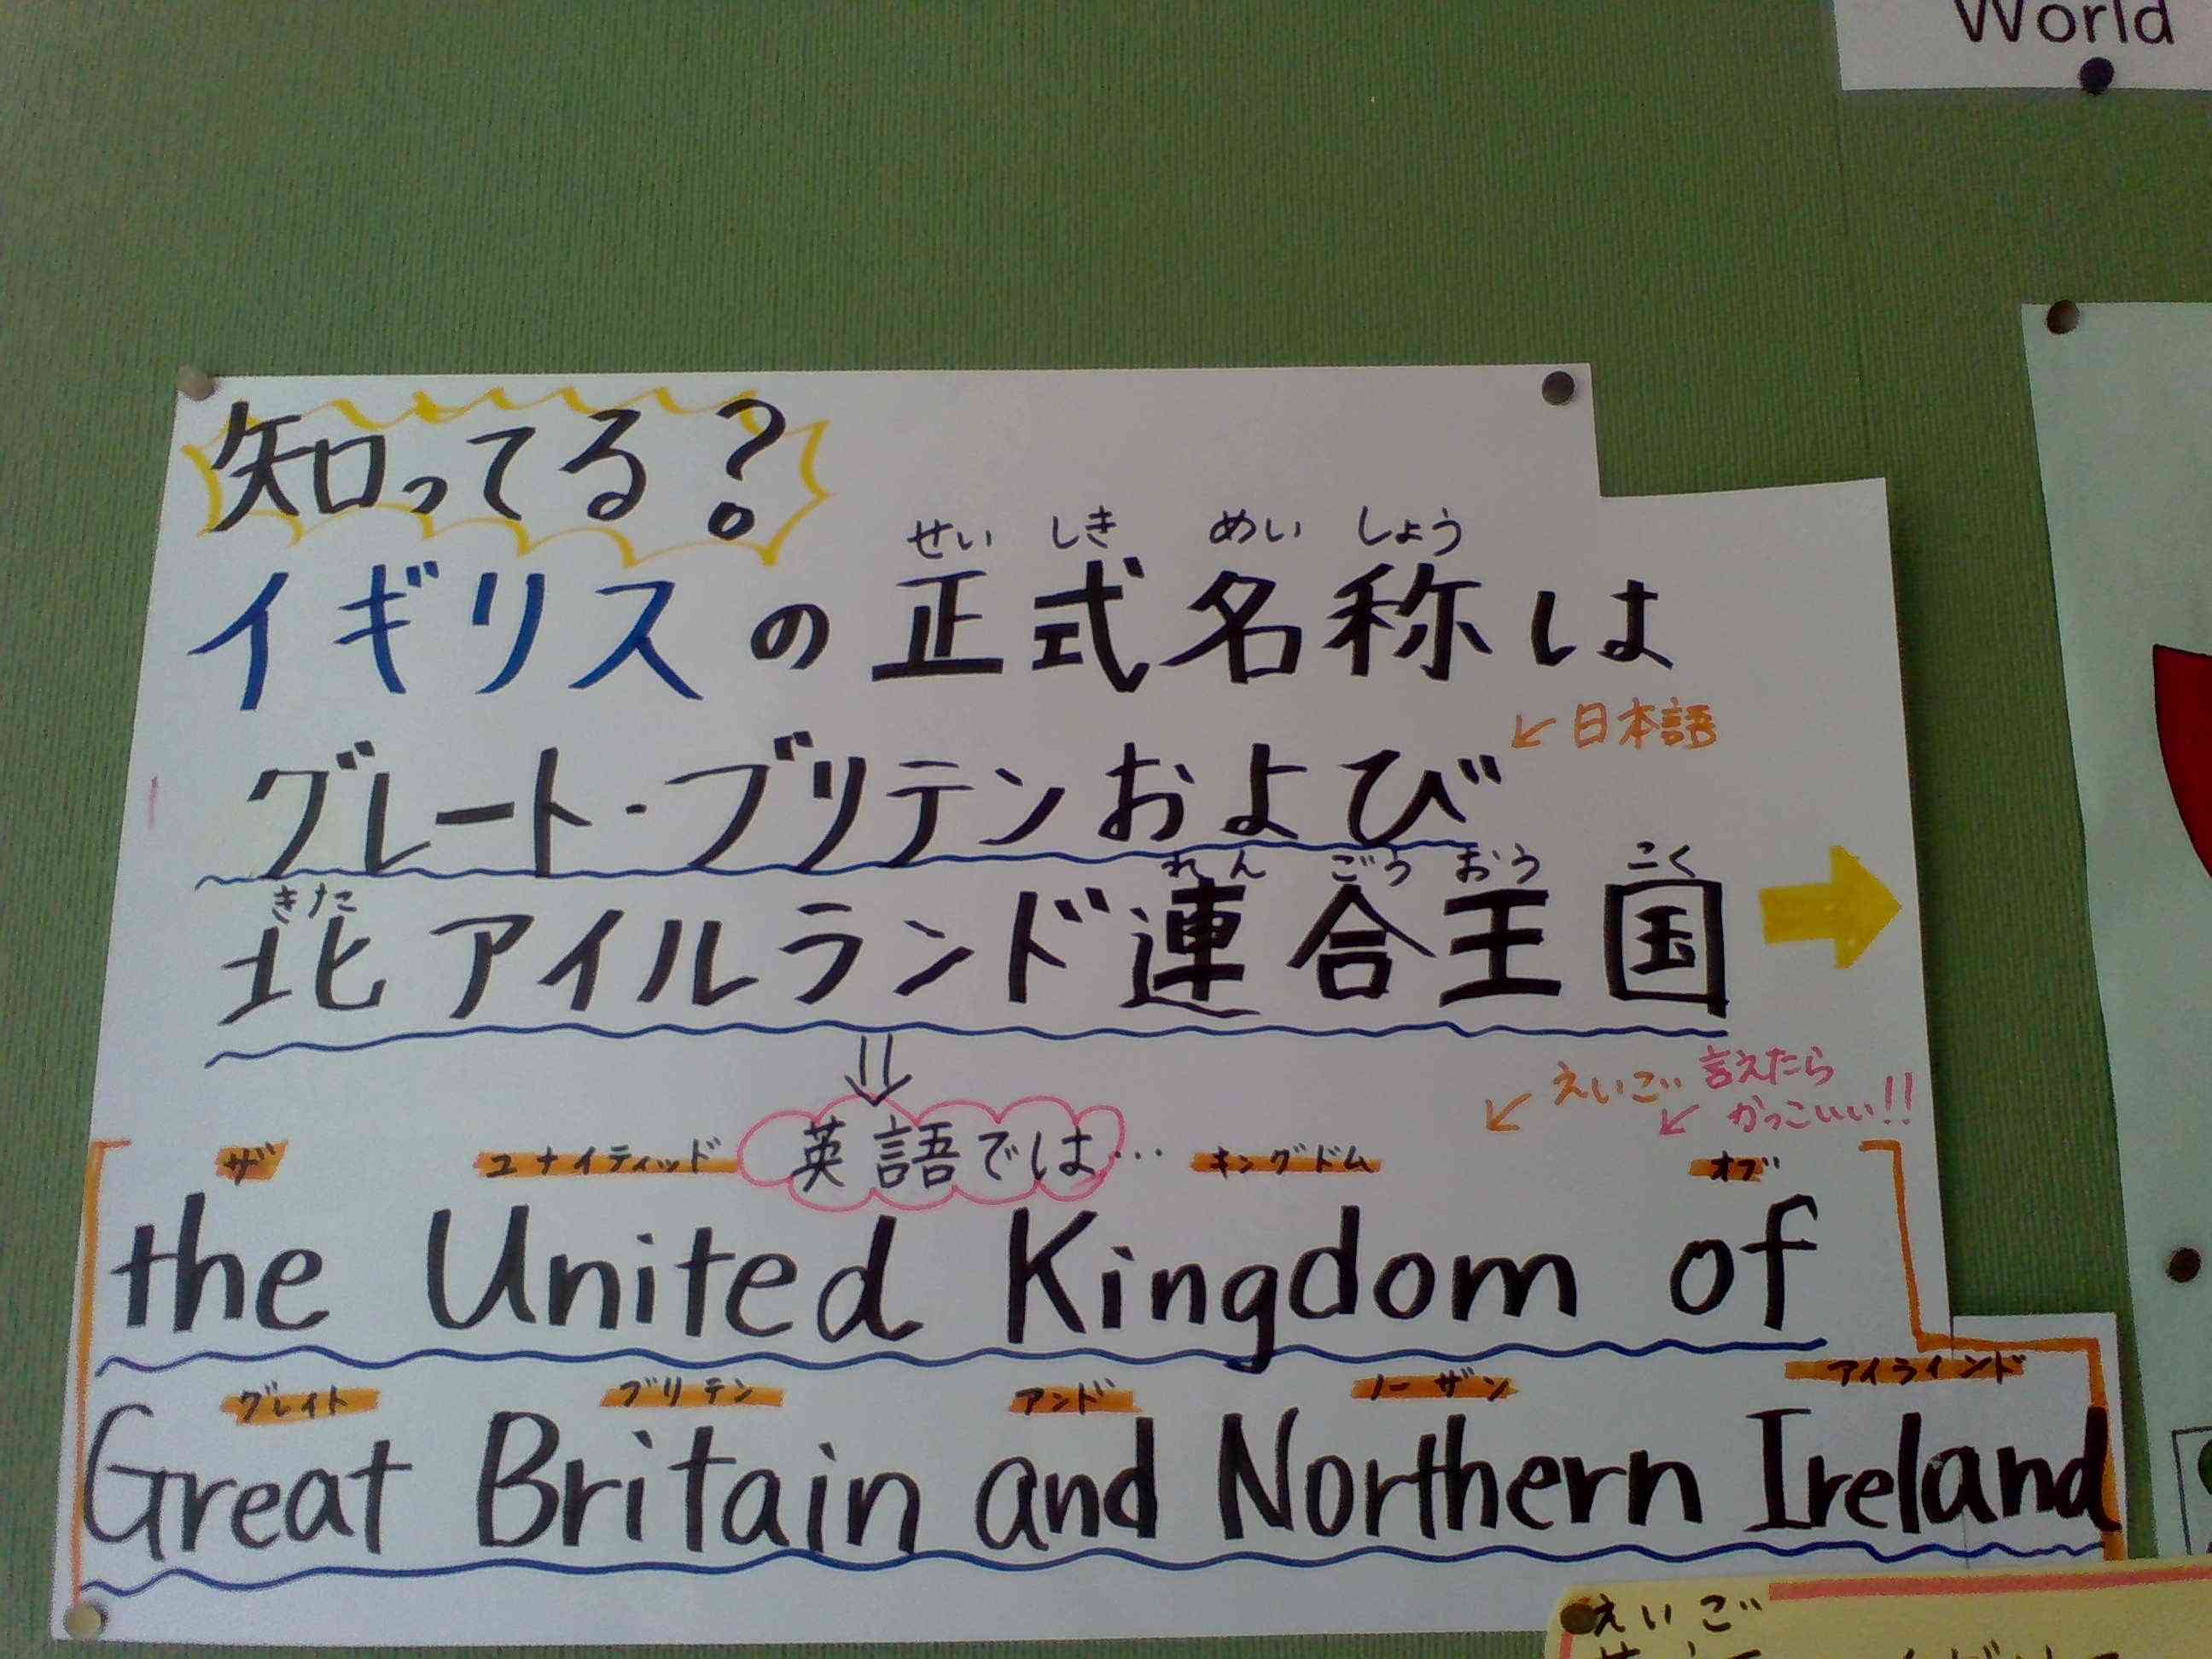 World
知ってる?
せい しき めい しょう
イギリスの正式名称は
↙日本語
グレート・ブリテンおよび
きた れん ごう おう こく
北アイルランド連合王国
えいご 言えたら
かっこいい!!
英語では…
ザ ユナイティッド キングドム オブ
the United Kingdom of
グレイト ブリテン アンド ノーザン アイラインド
Great Britain and Northern Ireland
えいご